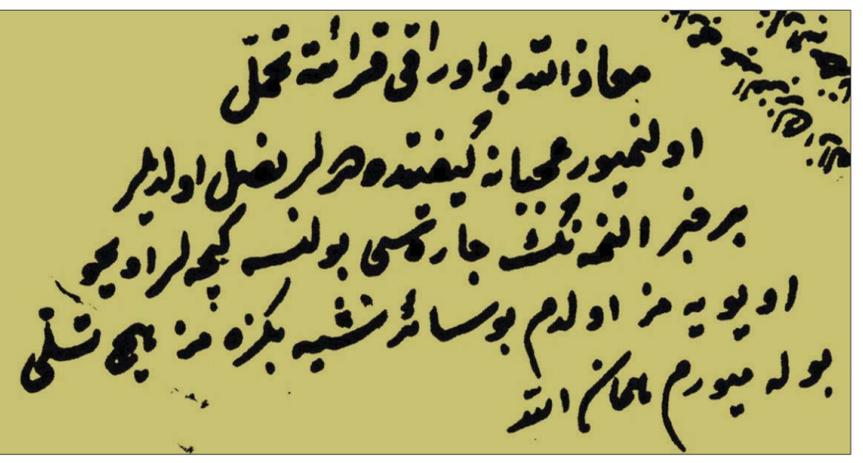 معاذ الله بو اوراقی قرائته تحمل
اولنمیور عجبا نه کیفیتده درلر نصل اولدیلر
بر خبر النمه نڭ چاره سی بولنسه کیجه لر اویقو
اویویه مز اولدم بو سائر شیئه بکزه مز هیچ تسلی
بوله میورم امان الله